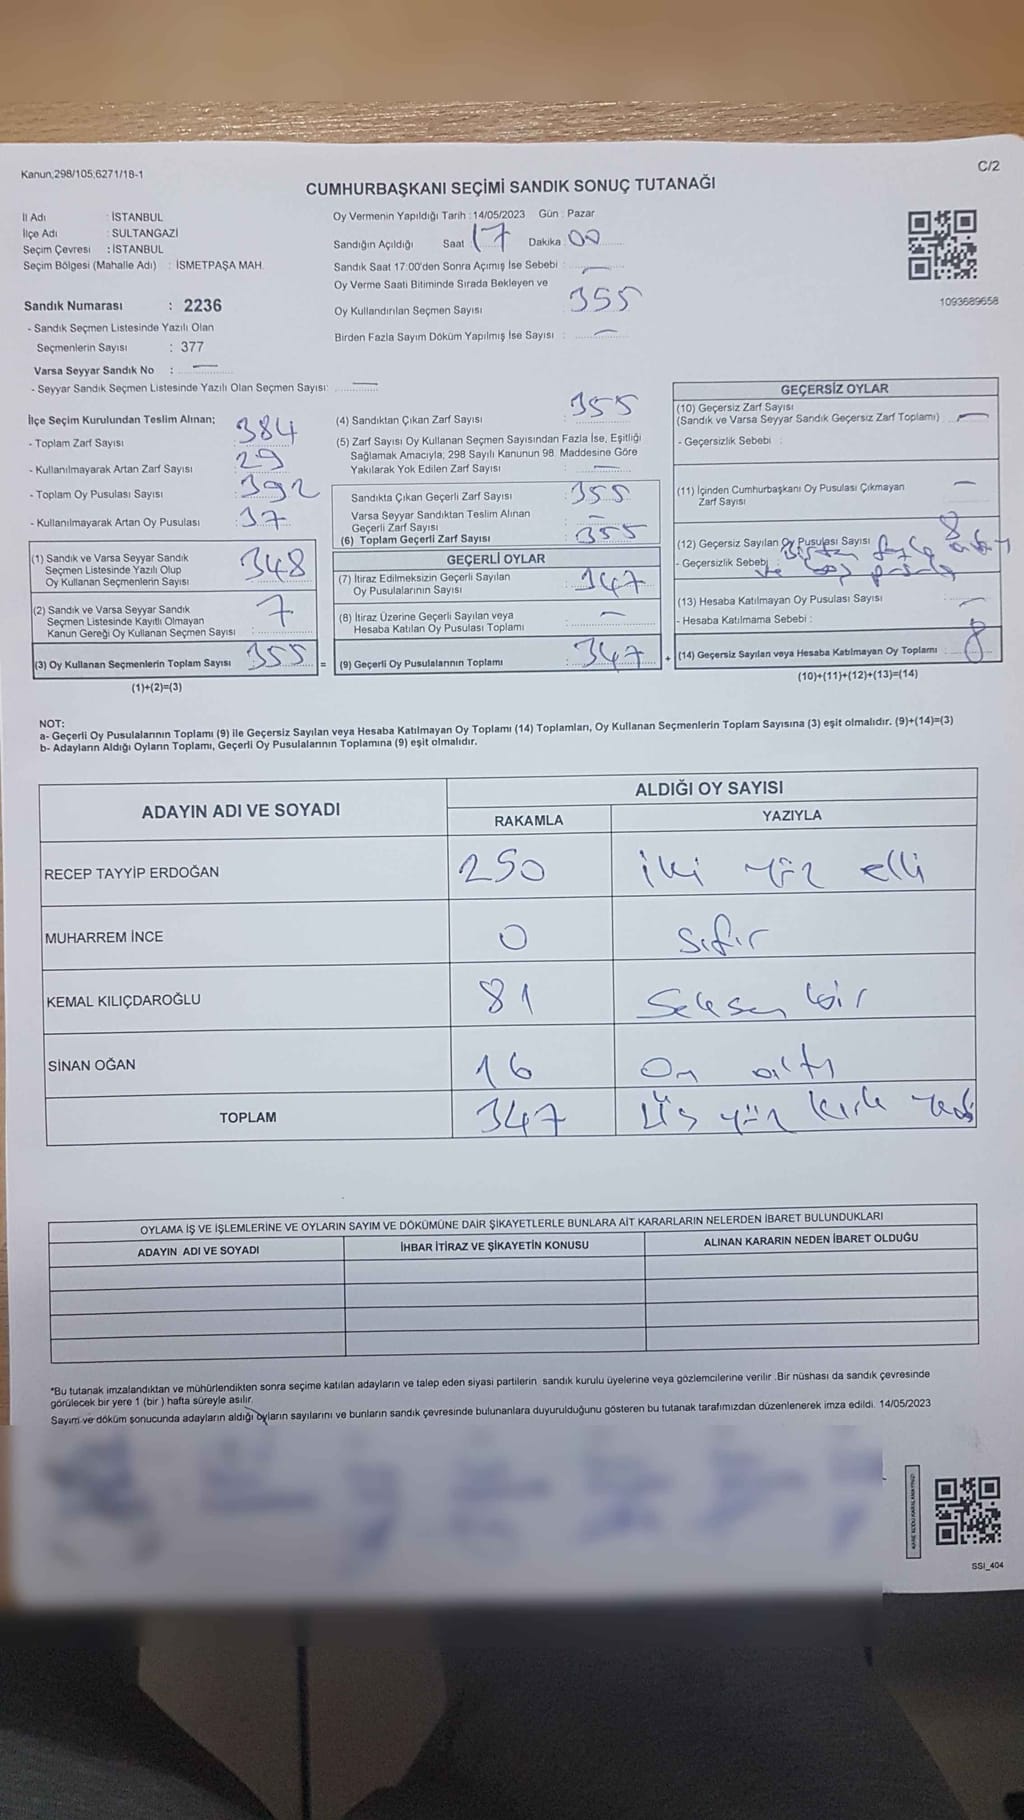 Kanun,298/105,6271/18-1
C/2
CUMHURBAŞKANI SEÇİMİ SANDIK SONUÇ TUTANAĞI
İl Adı : İSTANBUL
İlçe Adı : SULTANGAZİ
Seçim Çevresi : İSTANBUL
Seçim Bölgesi (Mahalle Adı) : İSMETPAŞA MAH.
Sandık Numarası : 2236
- Sandık Seçmen Listesinde Yazılı Olan
Seçmenlerin Sayısı : 377
Varsa Seyyar Sandık No : —
- Seyyar Sandık Seçmen Listesinde Yazılı Olan Seçmen Sayısı: —
Oy Vermenin Yapıldığı Tarih : 14/05/2023 Gün : Pazar
Sandığın Açıldığı Saat 17 Dakika 00
Sandık Saat 17:00'den Sonra Açımış İse Sebebi : —
Oy Verme Saati Bitiminde Sırada Bekleyen ve
Oy Kullandırılan Seçmen Sayısı : 355
Birden Fazla Sayım Döküm Yapılmış İse Sayısı : —
1093689658
İlçe Seçim Kurulundan Teslim Alınan;
- Toplam Zarf Sayısı : 384
- Kullanılmayarak Artan Zarf Sayısı : 29
- Toplam Oy Pusulası Sayısı : 392
- Kullanılmayarak Artan Oy Pusulası : 37
(1) Sandık ve Varsa Seyyar Sandık
Seçmen Listesinde Yazılı Olup
Oy Kullanan Seçmenlerin Sayısı : 348
(2) Sandık ve Varsa Seyyar Sandık
Seçmen Listesinde Kayıtlı Olmayan
Kanun Gereği Oy Kullanan Seçmen Sayısı : 7
(3) Oy Kullanan Seçmenlerin Toplam Sayısı : 355 =
(1)+(2)=(3)
(4) Sandıktan Çıkan Zarf Sayısı : 355
(5) Zarf Sayısı Oy Kullanan Seçmen Sayısından Fazla İse, Eşitliği
Sağlamak Amacıyla; 298 Sayılı Kanunun 98. Maddesine Göre
Yakılarak Yok Edilen Zarf Sayısı : —
Sandıkta Çıkan Geçerli Zarf Sayısı : 355
Varsa Seyyar Sandıktan Teslim Alınan
Geçerli Zarf Sayısı : —
(6) Toplam Geçerli Zarf Sayısı : 355
GEÇERLİ OYLAR
(7) İtiraz Edilmeksizin Geçerli Sayılan
Oy Pusulalarının Sayısı : 347
(8) İtiraz Üzerine Geçerli Sayılan veya
Hesaba Katılan Oy Pusulası Toplamı : —
(9) Geçerli Oy Pusulalarının Toplamı : 347 +
GEÇERSİZ OYLAR
(10) Geçersiz Zarf Sayısı
(Sandık ve Varsa Seyyar Sandık Geçersiz Zarf Toplamı) : —
- Geçersizlik Sebebi :
(11) İçinden Cumhurbaşkanı Oy Pusulası Çıkmayan
Zarf Sayısı : —
(12) Geçersiz Sayılan Oy Pusulası Sayısı : 8
- Geçersizlik Sebebi : Birden fazla
ve boş pusula
(13) Hesaba Katılmayan Oy Pusulası Sayısı : —
- Hesaba Katılmama Sebebi :
(14) Geçersiz Sayılan veya Hesaba Katılmayan Oy Toplamı : 8
(10)+(11)+(12)+(13)=(14)
NOT:
a- Geçerli Oy Pusulalarının Toplamı (9) ile Geçersiz Sayılan veya Hesaba Katılmayan Oy Toplamı (14) Toplamları, Oy Kullanan Seçmenlerin Toplam Sayısına (3) eşit olmalıdır. (9)+(14)=(3)
b- Adayların Aldığı Oyların Toplamı, Geçerli Oy Pusulalarının Toplamına (9) eşit olmalıdır.
ADAYIN ADI VE SOYADI
ALDIĞI OY SAYISI
RAKAMLA YAZIYLA
RECEP TAYYİP ERDOĞAN 250 iki yüz elli
MUHARREM İNCE 0 sıfır
KEMAL KILIÇDAROĞLU 81 Seksen bir
SİNAN OĞAN 16 On altı
TOPLAM 347 Üç yüz kırk yedi
OYLAMA İŞ VE İŞLEMLERİNE VE OYLARIN SAYIM VE DÖKÜMÜNE DAİR ŞİKAYETLERLE BUNLARA AİT KARARLARIN NELERDEN İBARET BULUNDUKLARI
ADAYIN ADI VE SOYADI İHBAR İTİRAZ VE ŞİKAYETİN KONUSU ALINAN KARARIN NEDEN İBARET OLDUĞU
*Bu tutanak imzalandıktan ve mühürlendikten sonra seçime katılan adayların ve talep eden siyasi partilerin sandık kurulu üyelerine veya gözlemcilerine verilir .Bir nüshası da sandık çevresinde
görülecek bir yere 1 (bir ) hafta süreyle asılır.
Sayım ve döküm sonucunda adayların aldığı oyların sayılarını ve bunların sandık çevresinde bulunanlara duyurulduğunu gösteren bu tutanak tarafımızdan düzenlenerek imza edildi. 14/05/2023
SSI_404